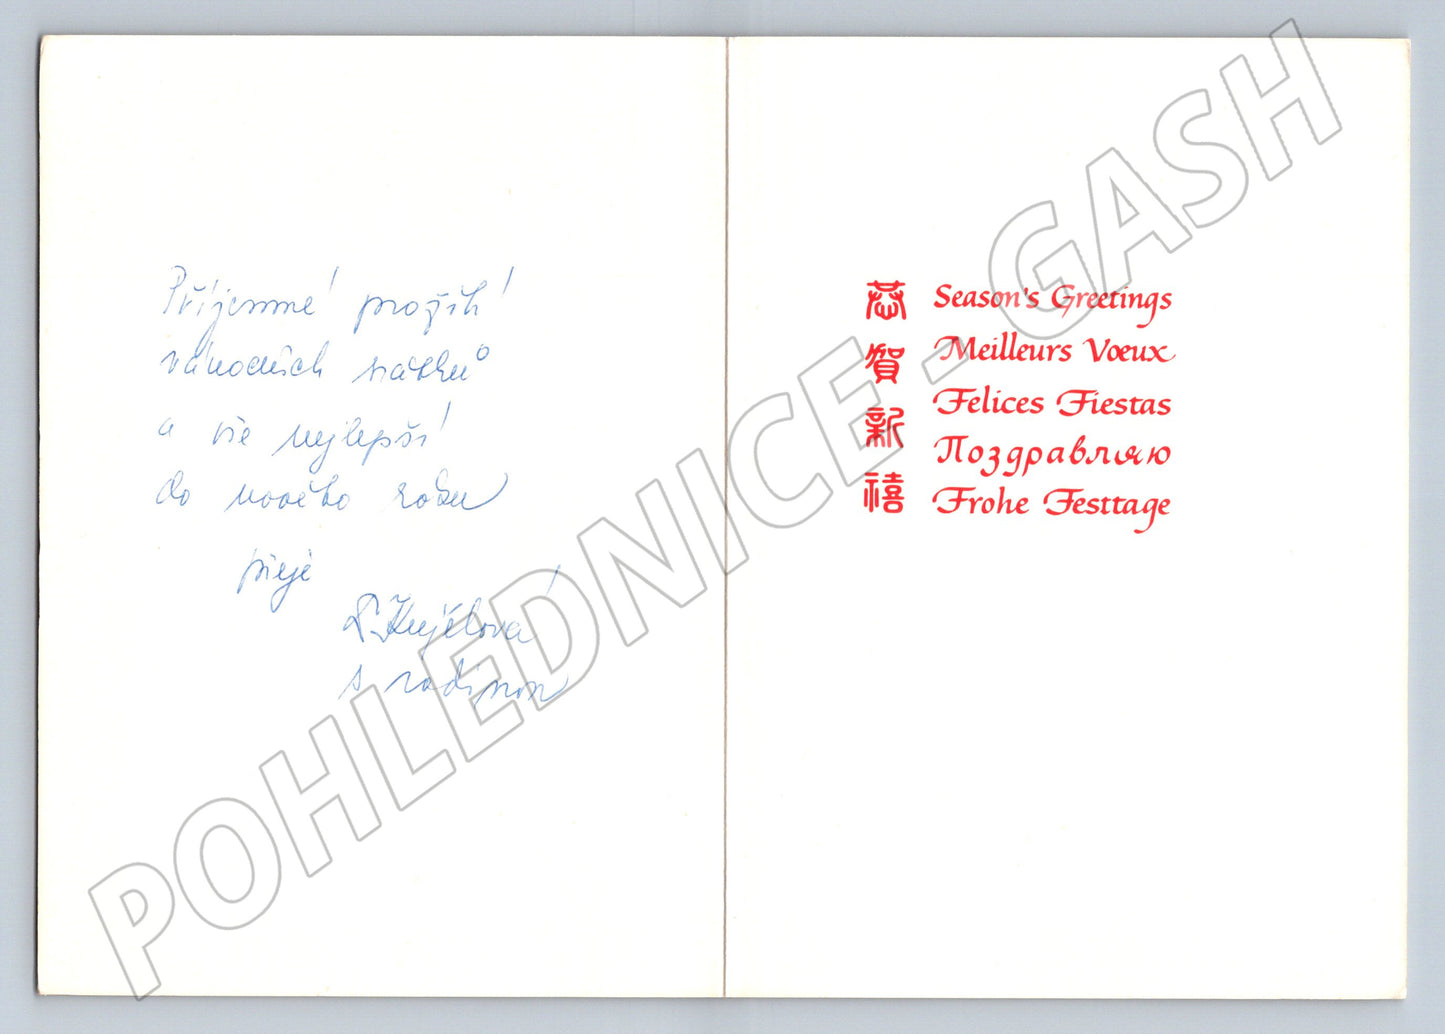 Příjemné prožití
vánočních svátků
a vše nejlepší
do nového roku
přeje
s rodinou
恭賀新禧
Season's Greetings
Meilleurs Vœux
Felices Fiestas
Поздравляю
Frohe Festtage
POHLEDNICE - GASH